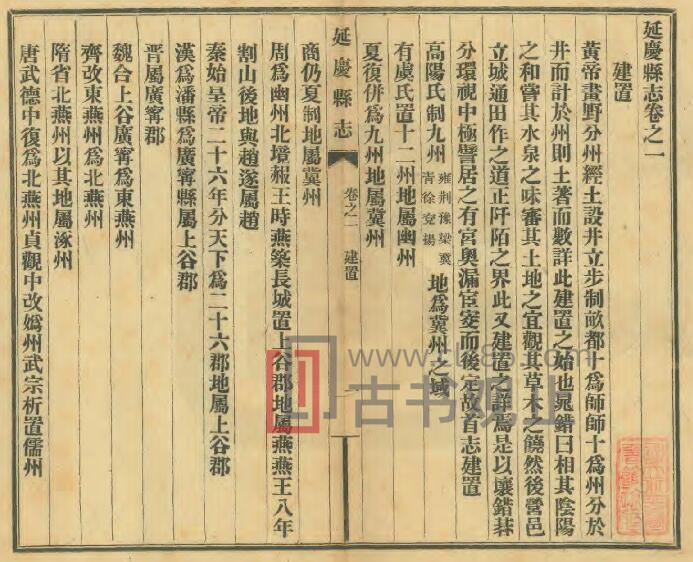 延慶縣志卷之一
建置
黃帝畫野分州經土設井立步制畝都十爲師師十爲州分於
井而計於州則土著而數詳此建置之始也晁錯曰相其陰陽
之和嘗其水泉之味審其土地之宜觀其草木之饒然後營邑
立城通田作之道正阡陌之界此又建置之詳焉是以壤錯棊
分環視中極譬居之有宮奧漏宧窔而後定故首志建置
高陽氏制九州 雍荆豫梁冀 靑徐兗揚 地爲冀州之域
有虞氏置十二州地屬幽州
夏復併爲九州地屬冀州
延慶縣志 卷之一 建置 一
商仍夏制地屬冀州
周爲幽州北境赧王時燕築長城置上谷郡地屬燕燕王八年
割山後地與趙遂屬趙
秦始皇帝二十六年分天下爲三十六郡地屬上谷郡
漢爲潘縣爲廣寗縣屬上谷郡
晋屬廣寗郡
魏合上谷廣寗爲東燕州
齊改東燕州爲北燕州
隋省北燕州以其地屬涿州
唐武德中復爲北燕州貞觀中改嬀州武宗析置儒州
古书